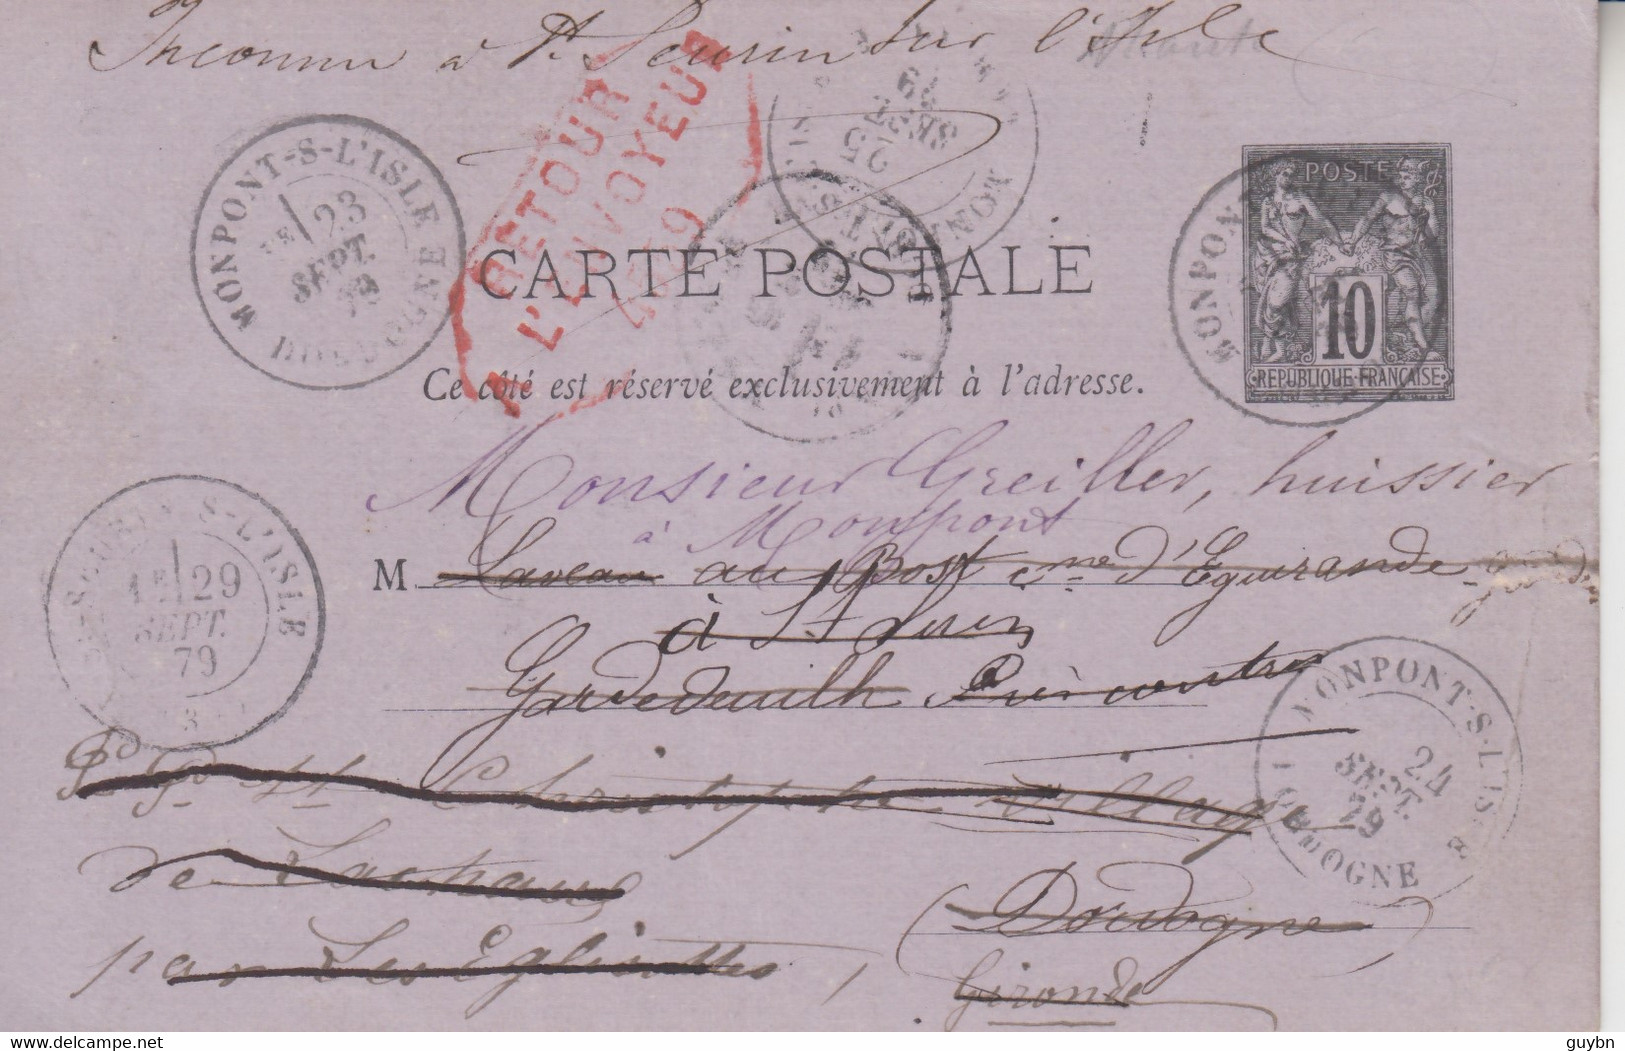 Inconnu à St Seurin sur l'Isle
MONPONT-S-L'ISLE
1E 23
SEPT.
79
DORDOGNE
RETOUR
A L'ENVOYEUR
4539
25
SEPT
79
MONPONT
POSTE
10
REPUBLIQUE FRANÇAISE
CARTE POSTALE
Ce côté est réservé exclusivement à l'adresse.
Monsieur Greiller, huissier
à Monpont
M Laveau au Bost cne d'Eguirande
à St
Gardedeuilh
S-L'ISLE
1E 29
SEPT.
79
MONPONT-S-L'ISLE
24
SEPT.
79
DORDOGNE
St Christophe village
de
par Les Eglisottes, (Dordogne)
Gironde
guybn